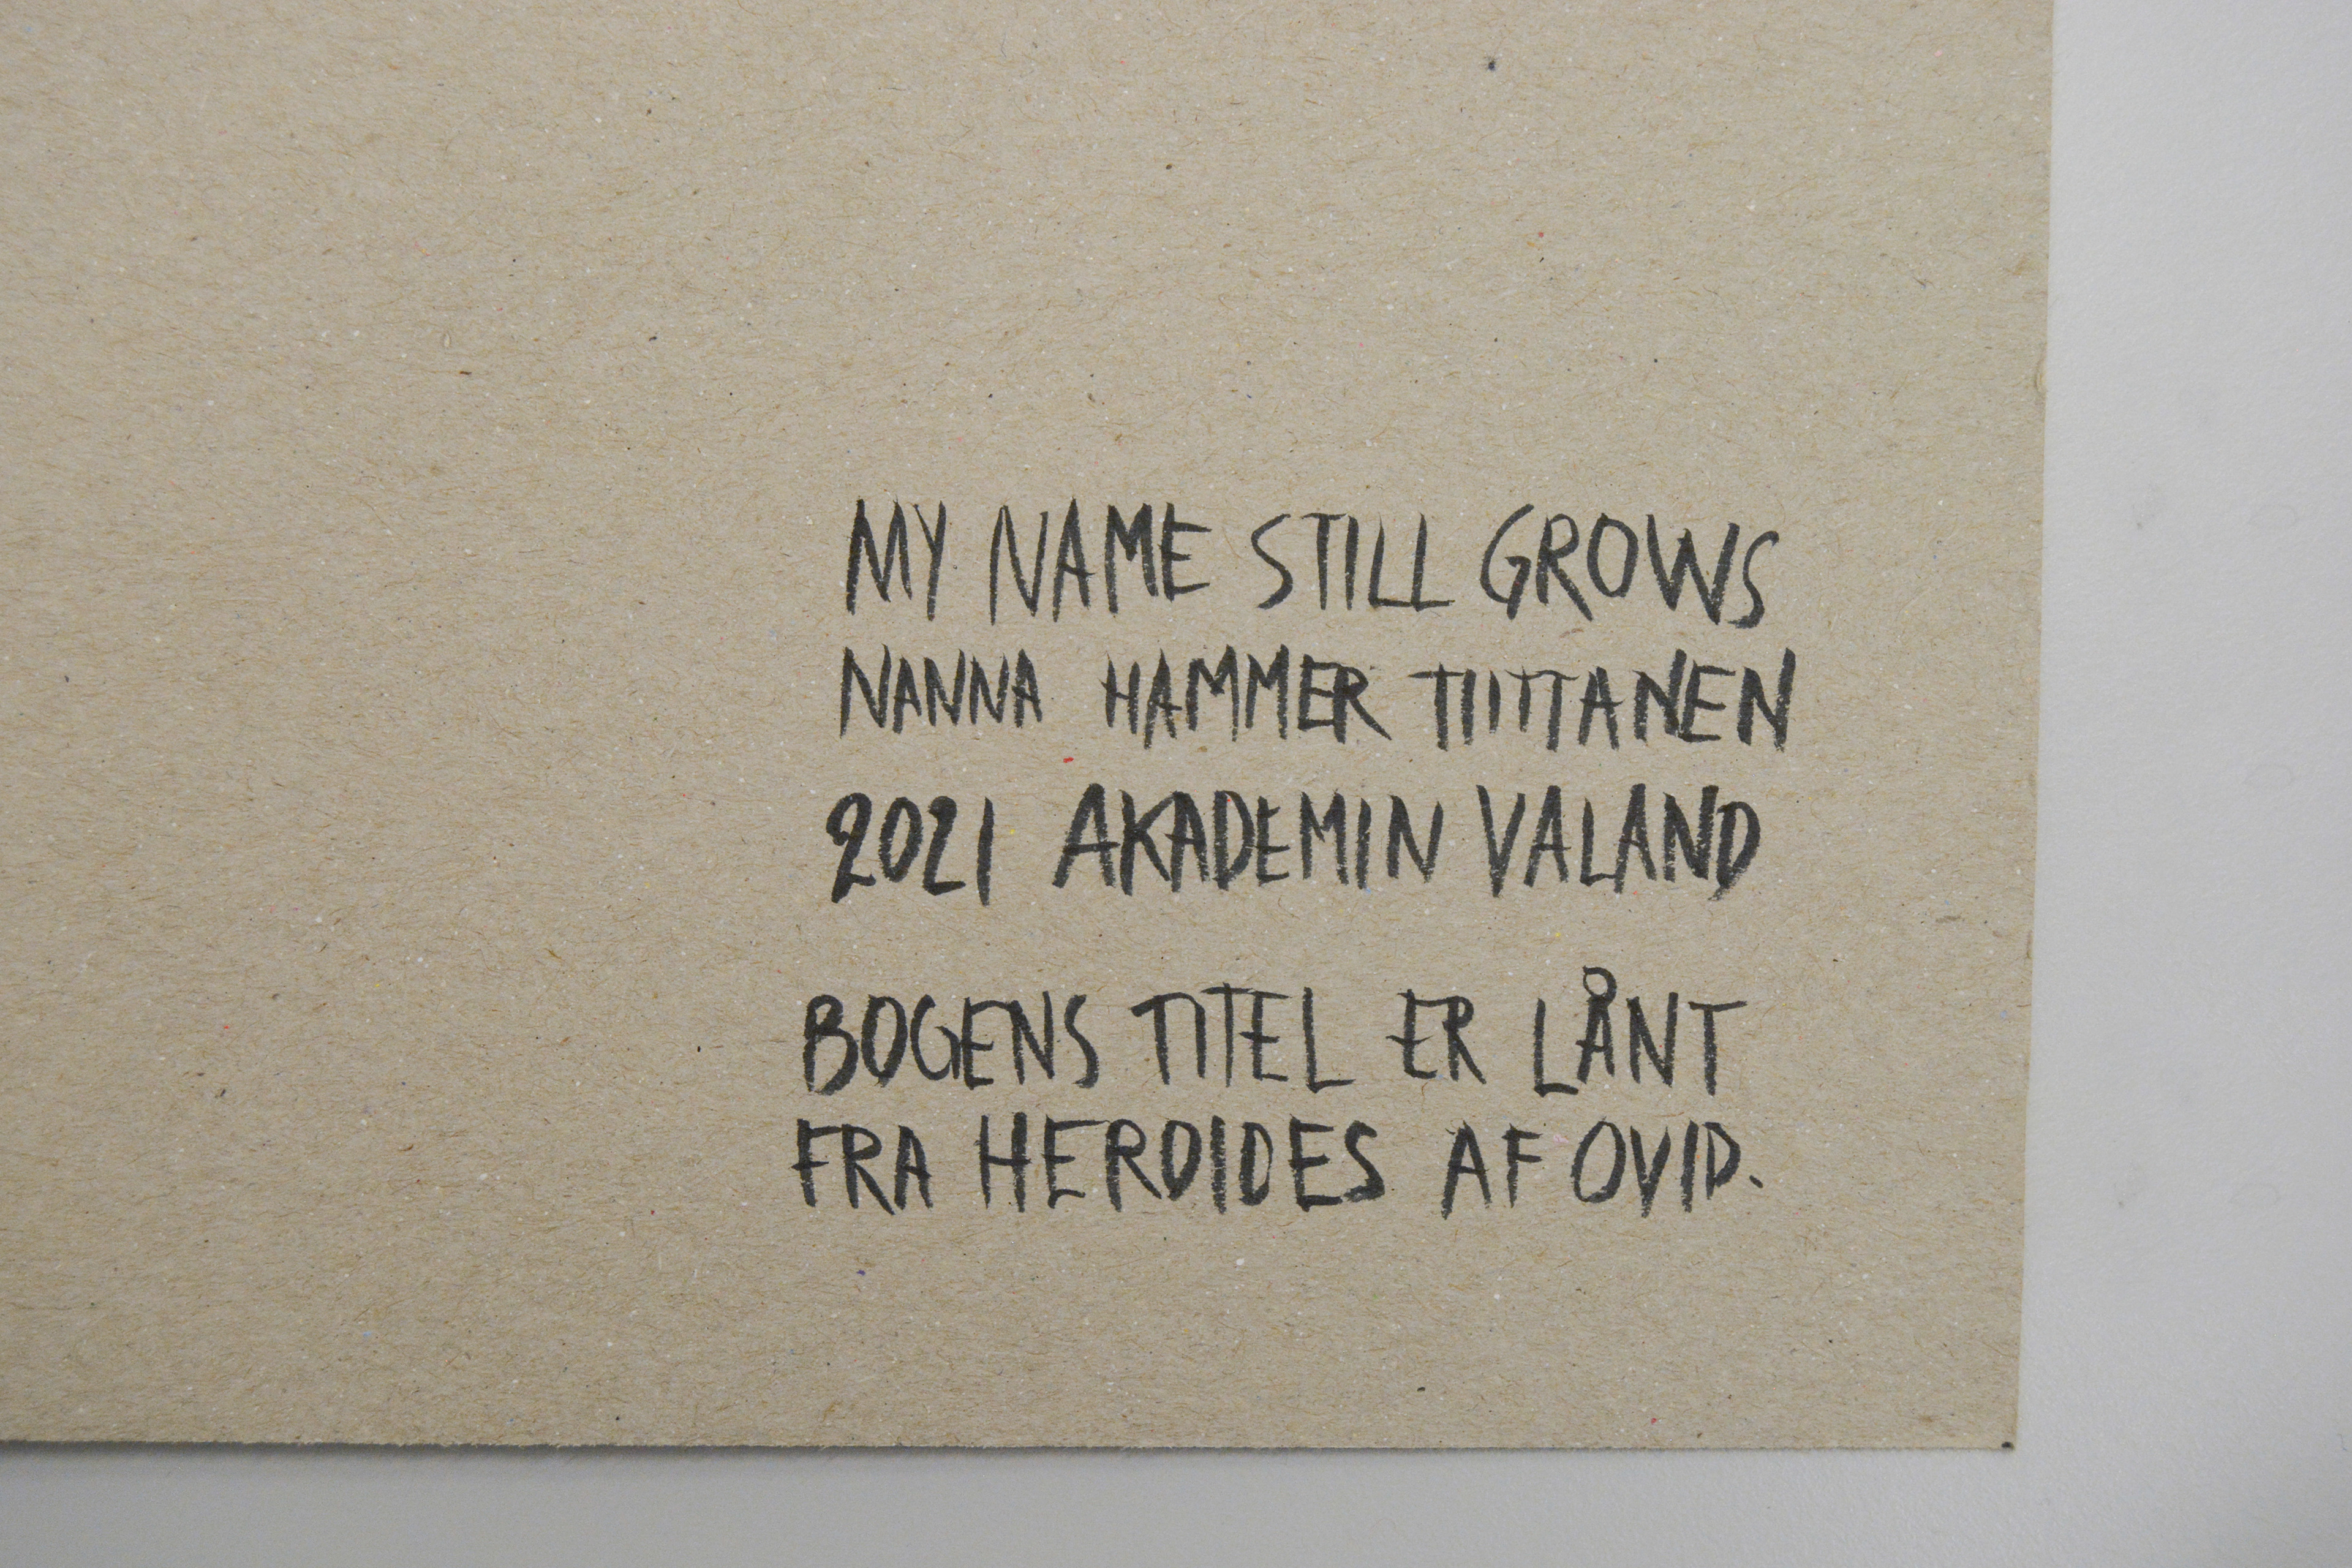 MY NAME STILL GROWS
NANNA HAMMER TIITTANEN
2021 AKADEMIN VALAND
BOGENS TITEL ER LÅNT
FRA HEROIDES AF OVID.